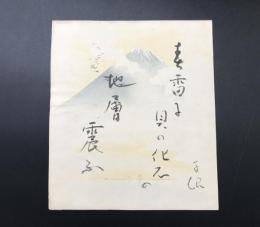 春雷に
貝の化石の
地層
震ふ